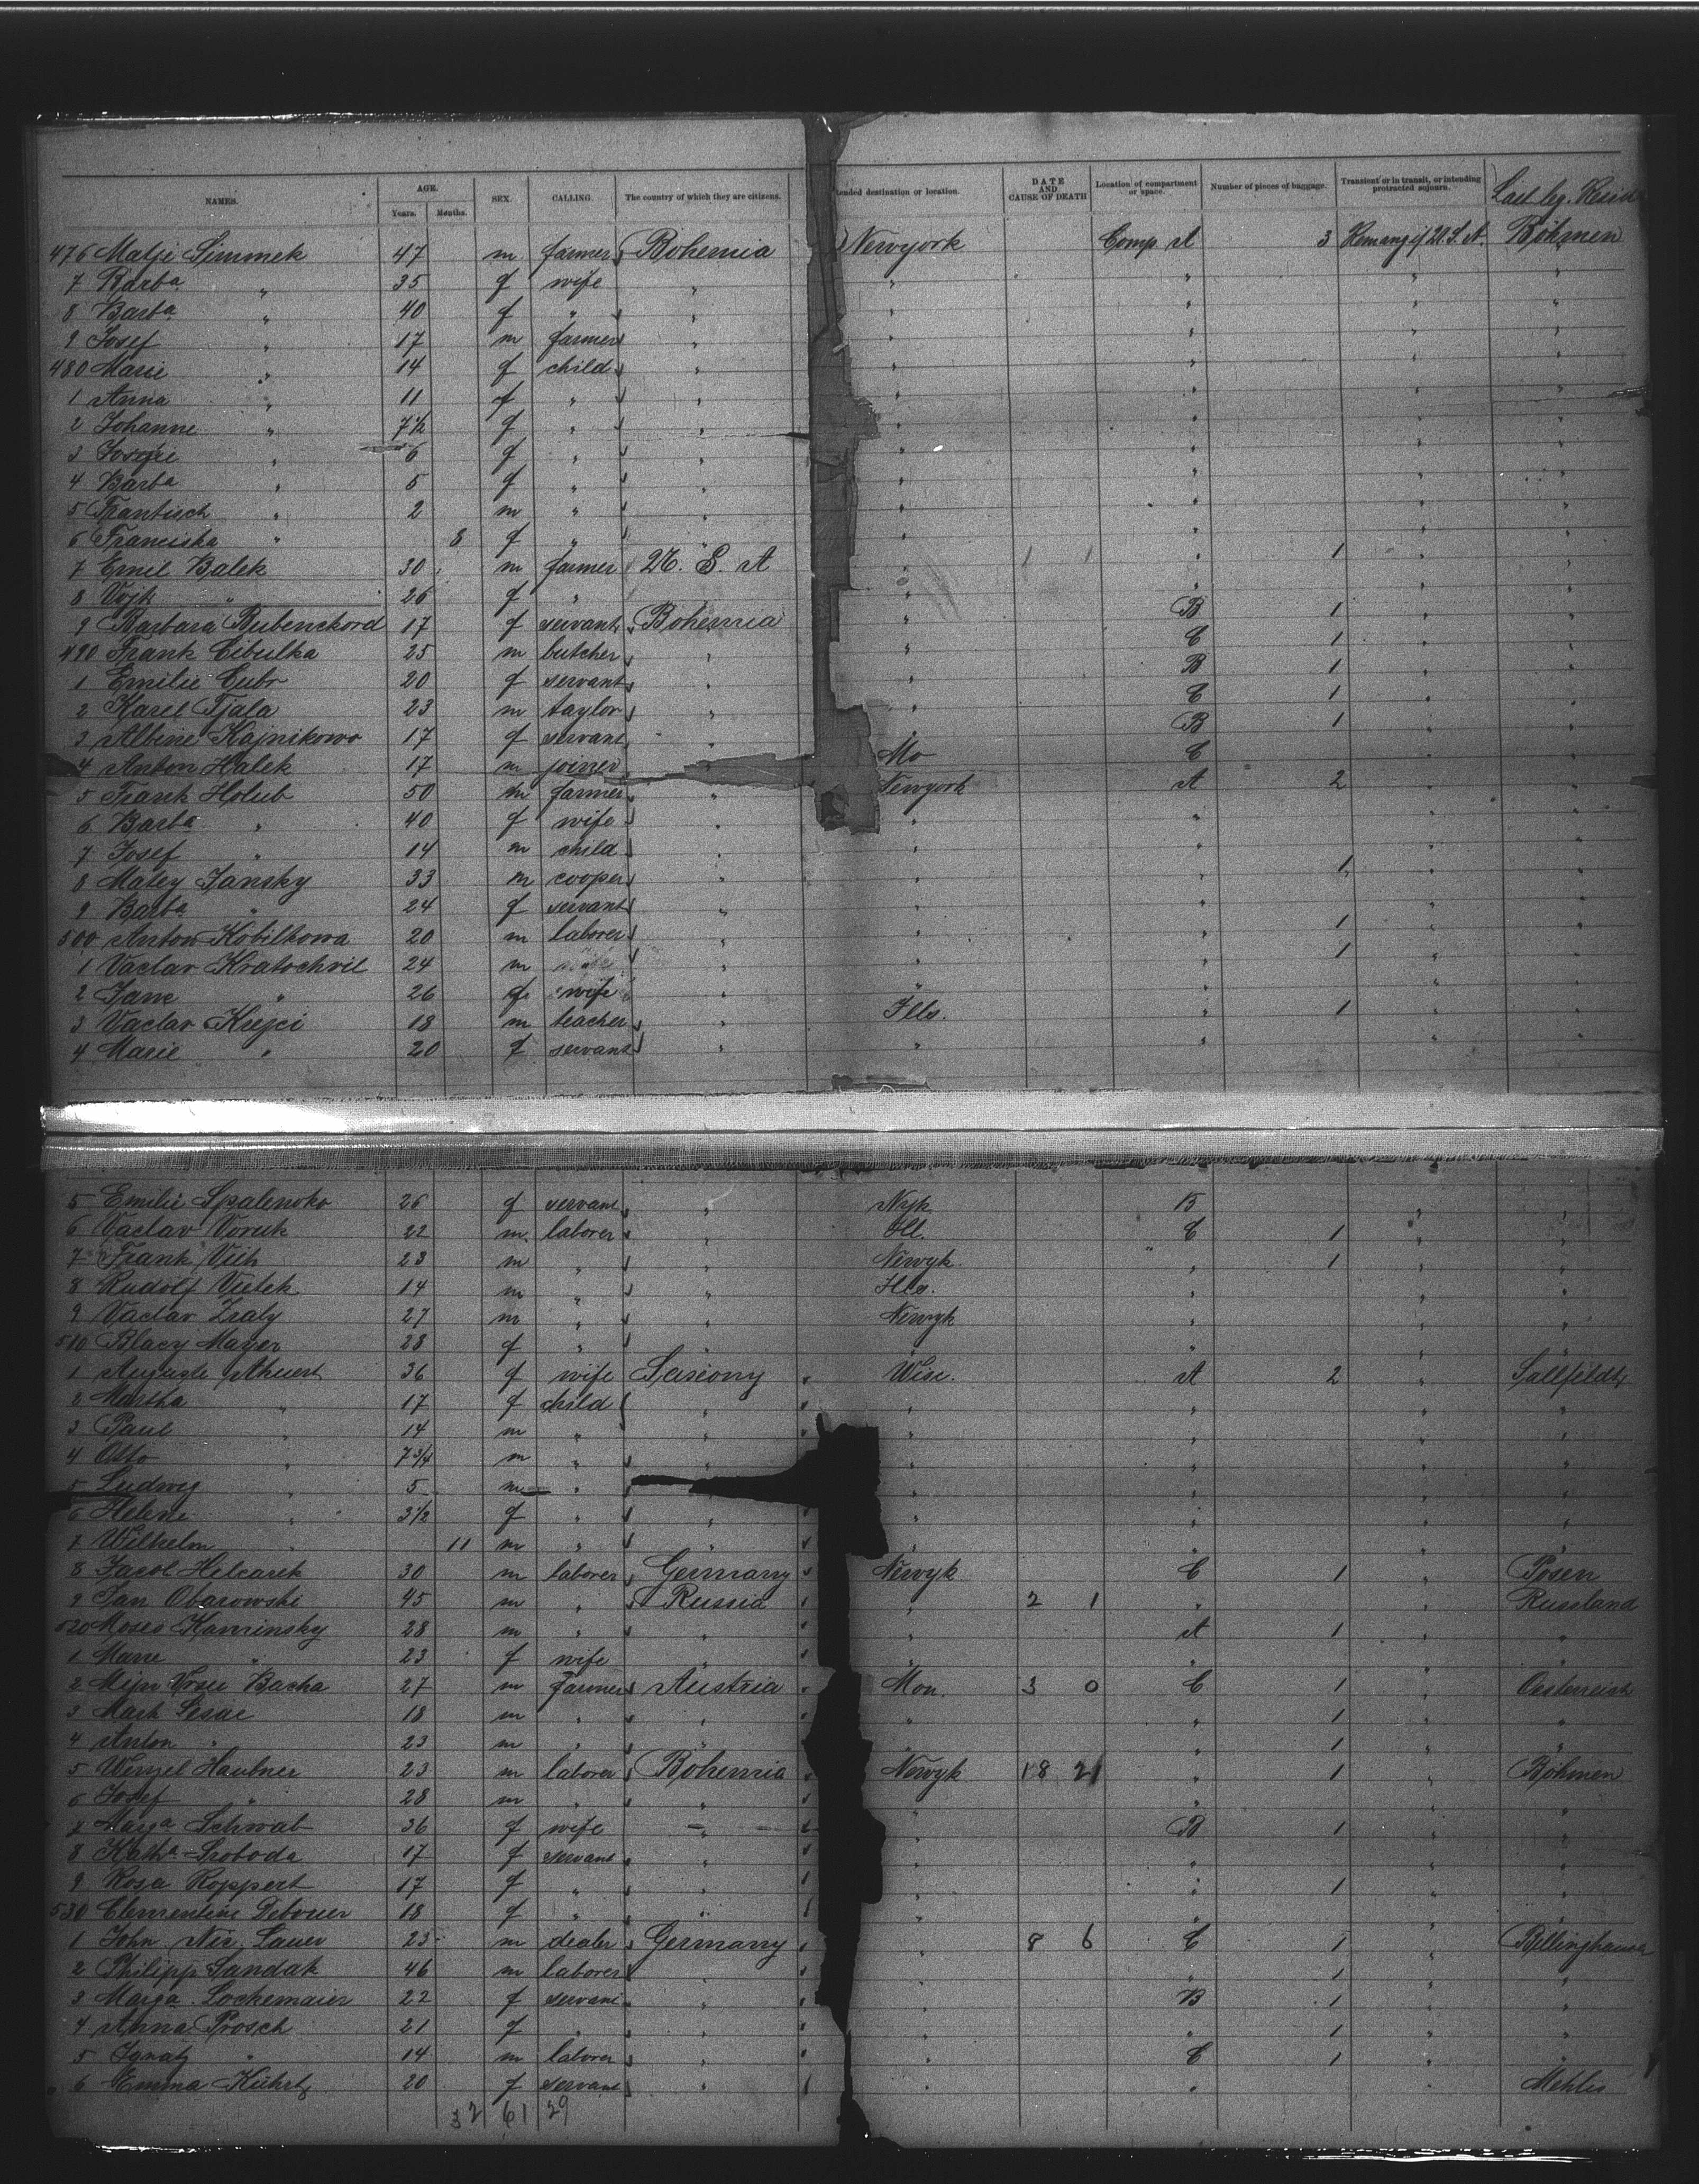 NAMES. AGE. Years. Months. SEX. CALLING. The country of which they are citizens. ended destination or location. DATE AND CAUSE OF DEATH Location of compartment or space. Number of pieces of baggage. Transient or in transit, or intending protracted sojourn. Last leg. Resid
476 Matje Simmek 47 m farmer Bohemia Newyork Comp. A 3 U.S.A. Böhmen
7 Barba " 35 f wife " " " " "
8 Barba " 40 f " " " " " "
9 Josef " 17 m farmer " " " " "
480 Marie " 14 f child " " " " "
1 Anna " 11 f " " " " " "
2 Johanne " 7½ f " " " " " "
3 " 6 f " " " " " "
4 Barba " 5 f " " " " " "
5 Frantisch " 2 m " " " " " "
6 Franciska " 8 f " " " " " "
7 Emil Balek 30 m farmer U. S. A " " 1 " "
8 Vojt " 26 f " " " " "
9 Barbara Bubenckord 17 f servant Bohemia " B 1 " "
490 Frank Cibulka 25 m butcher " " C 1 " "
1 Emilie Cubr 20 f servant " " B 1 " "
2 Karel Fjala 23 m taylor " " C 1 " "
3 Albine Kajnikowo 17 f servant " " B 1 " "
4 Anton Halek 17 m joiner " Mo C " "
5 Frank Holub 50 m farmer " Newyork A 2 " "
6 Barba " 40 f wife " " " " "
7 Josef " 14 m child " " " " "
8 Matey Jansky 33 m cooper " " " 1 " "
9 Barba " 24 f servant " " " " "
500 Anton Kobilkowa 20 m laborer " " " 1 " "
1 Vaclav Kratochvil 24 m " " " 1 " "
2 Jane " 26 f wife " " " " "
3 Vaclav Krejci 18 m teacher " Ills. " 1 " "
4 Marie " 20 f servant " " " " "
5 Emilie Spalensko 26 f servant " Nyk B " "
6 Vaclav Voruk 22 m laborer " Ill. C 1 " "
7 Frank Vith 23 m " " Newyk. " 1 " "
8 Rudolf Vietek 14 m " " Ills. " " "
9 Vaclav Zraly 27 m " " Newyk " " "
510 Blacy Mayer 28 f " " " " " "
1 Auguste 36 f wife Saxony Wisc. A 2 " Sallfeldt
2 Martha " 17 f child " " " " "
3 Paul " 14 m " " " " " "
4 Otto " 7¾ m " " " " " "
5 Ludwig " 5 m " " " " " "
6 Helene " 3½ f " " " " " "
7 Wilhelm " 11 m " " " " " "
8 Jacob Helcarek 30 m laborer Germany Newyk C 1 " Posen
9 Jan Obarowski 45 m " Russia " 2 1 " " Russland
520 Moses Kaminsky 28 m " " " A 1 " "
1 Marie " 23 f wife " " " " "
2 Bacha 27 m farmer Austria Mon. 3 0 C 1 " Oesterreich
3 Mark Lesac 18 m " " " " 1 " "
4 Anton " 23 m " " " " 1 " "
5 Wenzel Haubner 23 m laborer Bohemia Newyk 18 21 " 1 " Böhmen
6 Josef " 28 m " " " " " "
7 Marga Schwab 36 f wife " " B 1 " "
8 Katha Sroboda 17 f servant " " " " "
9 Rosa Roppert 17 f " " " " 1 " "
530 Clementine Debouer 18 f " " " " " "
1 John Nic. Lauer 23 m dealer Germany " 8 6 C 1 " Billinghausen
2 Philipp Sandak 46 m laborer " " " 1 " "
3 Marga. Lockemaier 22 f servant " " B 1 " "
4 Anna Prosch 21 f " " " " 1 " "
5 Ignatz " 14 m laborer " " C 1 " "
6 Emma Kührt 20 f servant " " " " Mehlis
32 61 29